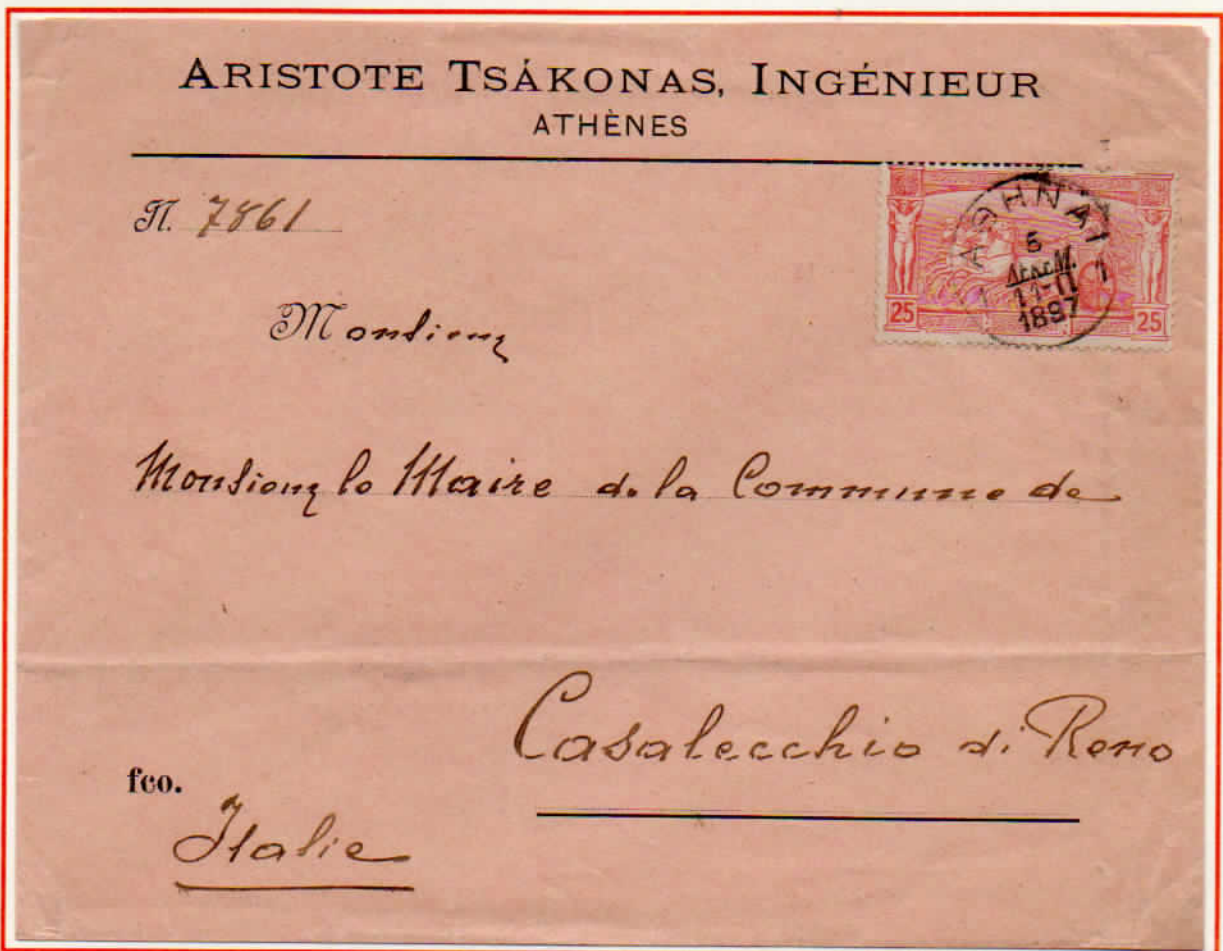 ARISTOTE TSÁKONAS, INGÉNIEUR
ATHÈNES
Π. 7861
ΑΘΗΝΑΙ
1 1
5
11-II
1897
25 25
Monsieur
Monsieur le Maire de la Commune de
Casalecchio di Reno
fco.
Italie